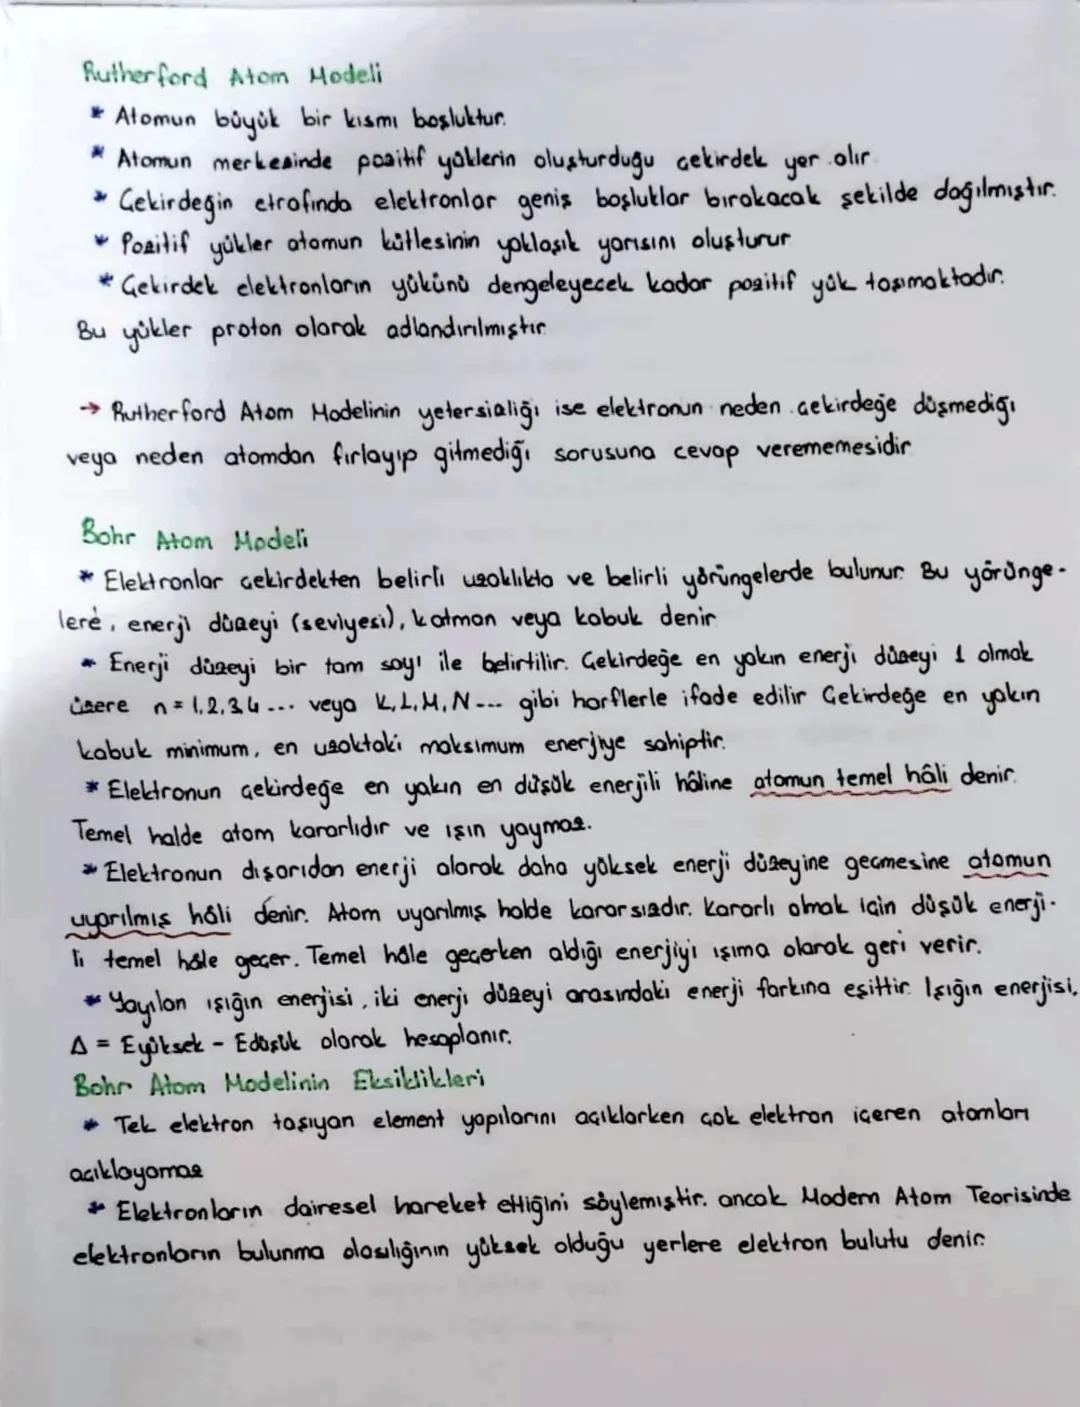 Rutherford Atom Modeli
* Atomun büyük bir kısmı boşluktur.
* Atomun merkezinde pozitif yüklerin oluşturduğu çekirdek yer alır.
* Çekirdeğin etrafında elektronlar geniş boşluklar bırakacak şekilde dağılmıştır.
* Pozitif yükler atomun kütlesinin yaklaşık yarısını oluşturur
* Çekirdek elektronların yükünü dengeleyecek kadar pozitif yük taşımaktadır.
Bu yükler proton olarak adlandırılmıştır
→ Rutherford Atom Modelinin yetersizliği ise elektronun neden çekirdeğe düşmediği
veya neden atomdan fırlayıp gitmediği sorusuna cevap verememesidir
Bohr Atom Modeli
* Elektronlar çekirdekten belirli uzaklıkta ve belirli yörüngelerde bulunur. Bu yörünge-
lere, enerji düzeyi (seviyesi), katman veya kabuk denir
* Enerji düzeyi bir tam sayı ile belirtilir. Çekirdeğe en yakın enerji düzeyi 1 olmak
üzere n = 1,2,3,4... veya K,L,M,N... gibi harflerle ifade edilir Çekirdeğe en yakın
kabuk minimum, en uzaktaki maksimum enerjiye sahiptir.
* Elektronun çekirdeğe en yakın en düşük enerjili hâline atomun temel hâli denir.
Temel halde atom kararlıdır ve ışın yaymaz.
* Elektronun dışarıdan enerji alarak daha yüksek enerji düzeyine geçmesine atomun
uyarılmış hâli denir. Atom uyarılmış halde kararsızdır. Kararlı olmak için düşük enerji-
li temel hâle geçer. Temel hâle geçerken aldığı enerjiyi ışıma olarak geri verir.
* Yayılan ışığın enerjisi, iki enerji düzeyi arasındaki enerji farkına eşittir. Işığın enerjisi,
Δ = Eyüksek - Edüşük olarak hesaplanır.
Bohr Atom Modelinin Eksiklikleri
* Tek elektron taşıyan element yapılarını açıklarken çok elektron içeren atomları
açıklayamaz
* Elektronların dairesel hareket ettiğini söylemiştir. ancak Modern Atom Teorisinde
elektronların bulunma olasılığının yüksek olduğu yerlere elektron bulutu denir.